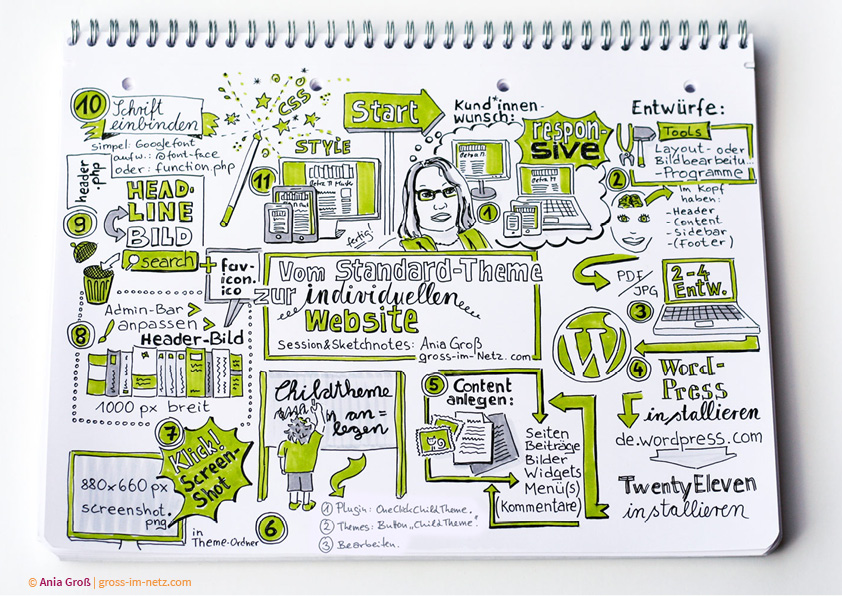 Vom Standard-Theme
zur individuellen
Website
Session&Sketchnotes: Ania Groß
gross-im-Netz.com
Start
Kund*innen-
wunsch:
respon-
sive
1
Entwürfe:
2
Tools
Layout- oder
Bildbearbeitu...
-Programme
im Kopf
haben:
-Header
-Content
-Sidebar
-(Footer)
PDF/
JPG
2-4
Entw.
3
4
Word-
Press
installieren
de.wordpress.com
TwentyEleven
installieren
5
Content
anlegen:
Seiten
Beiträge
Bilder
Widgets
Menü(s)
(Kommentare)
6
Childtheme
an=
legen
1 Plugin: OneClickChildTheme.
2 Themes: Button „ChildTheme".
3 Bearbeiten.
7
Klick!
Screen-
Shot
880x660 px
screenshot.
png
in
Theme-Ordner
8
Admin-Bar
anpassen
Header-Bild
1000 px breit
9
header.
php
HEAD-
LINE
BILD
search
+
fav-
icon.
ico
10
Schrift
einbinden
simpel: Googlefont
aufw.: @font-face
oder: function.php
11
CSS
STYLE
fertig!
© Ania Groß | gross-im-netz.com